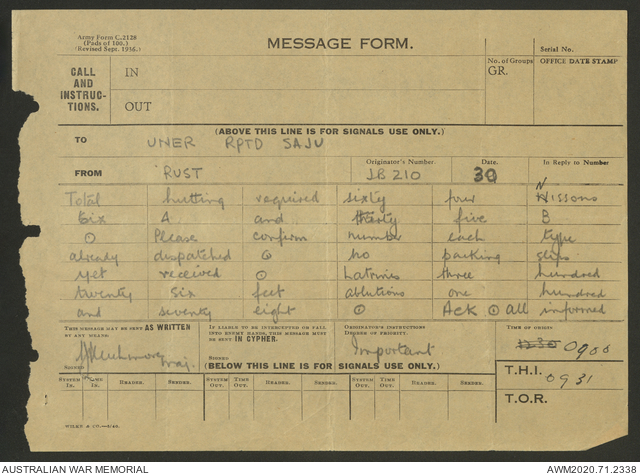 Army Form C.2128
(Pads of 100.)
(Revised Sept. 1936.)
MESSAGE FORM.
Serial No.
CALL AND INSTRUC- TIONS.
IN
OUT
No. of Groups
GR.
OFFICE DATE STAMP
(ABOVE THIS LINE IS FOR SIGNALS USE ONLY.)
TO UNER RPTD SAJU
FROM RUST
Originator's Number JB210
Date. 30
In Reply to Number
Total hutting required sixty four Nissons
six A and thirty five B
⊙ Please confirm number each type
already dispatched ⊙ no packing slips
yet received ⊙ Latrines three hundred
twenty six feet ablutions one hundred
and seventy eight ⊙ Ack ⊙ all informed
THIS MESSAGE MAY BE SENT AS WRITTEN BY ANY MEANS.
IF LIABLE TO BE INTERCEPTED OR FALL INTO ENEMY HANDS, THIS MESSAGE MUST BE SENT IN CYPHER.
ORIGINATOR'S INSTRUCTIONS
DEGREE OF PRIORITY.
Important
TIME OF ORIGIN
1230 0900
SIGNED Maj.
SIGNED
(BELOW THIS LINE IS FOR SIGNALS USE ONLY.)
T.H.I. 0931
SYSTEM IN. TIME IN. READER. SENDER. SYSTEM OUT. TIME OUT. READER. SENDER. SYSTEM OUT. TIME OUT. READER. SENDER.
T.O.R.
AUSTRALIAN WAR MEMORIAL
AWM2020.71.2338